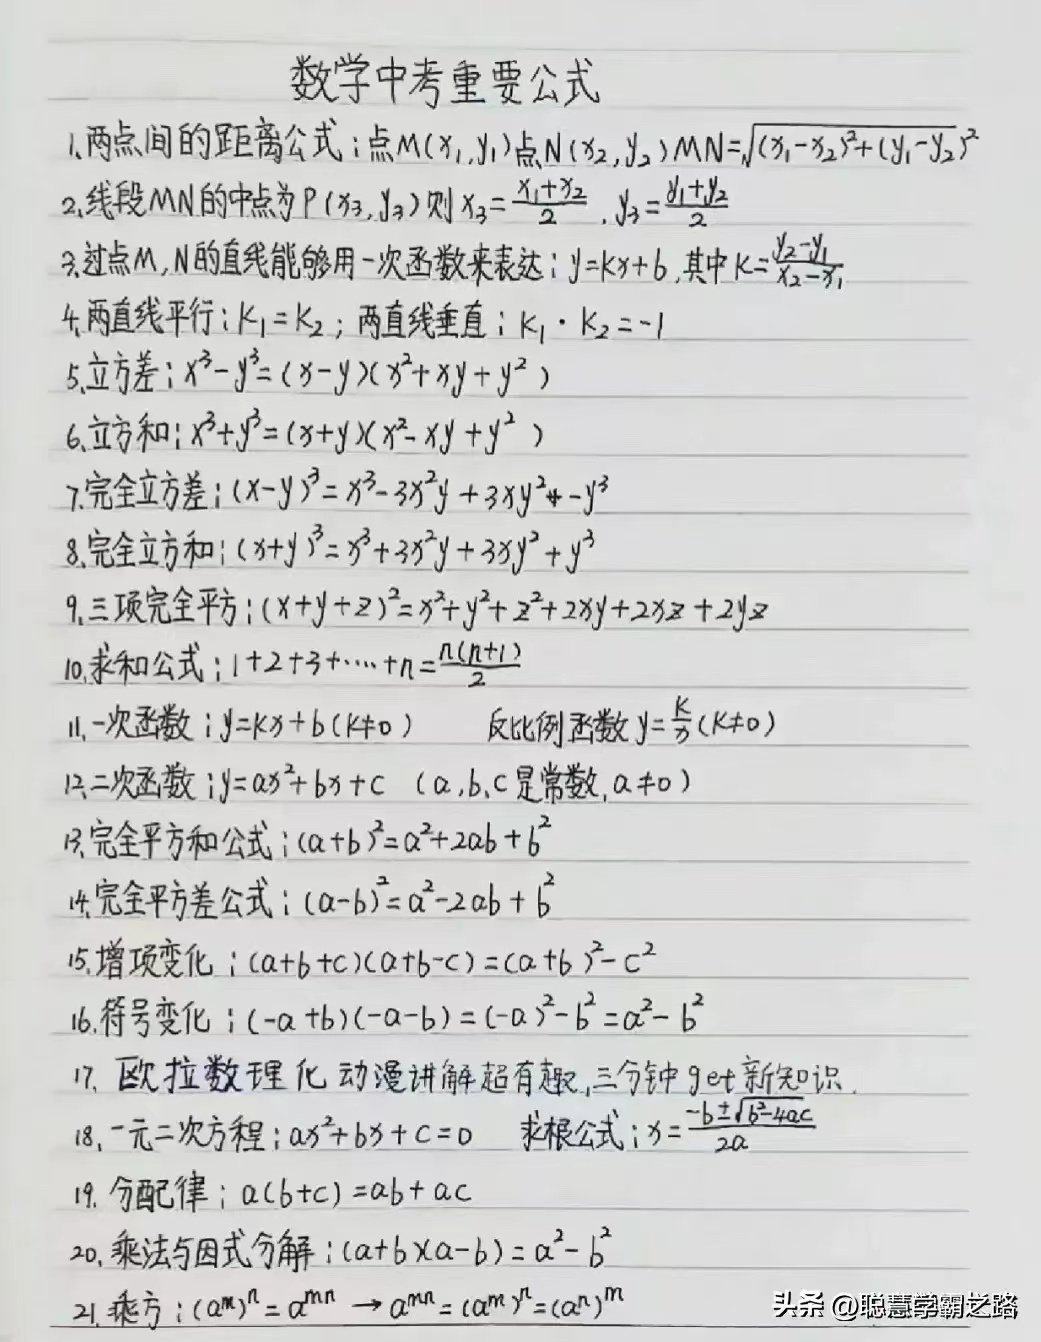 数学中考重要公式
1.两点间的距离公式:点M(x₁,y₁)点N(x₂,y₂)MN=√(x₁-x₂)²+(y₁-y₂)²
2.线段MN的中点为P(x₃,y₃)则x₃=(x₁+x₂)/2,y₃=(y₁+y₂)/2
3.过点M,N的直线能够用一次函数来表达:y=kx+b,其中K=(y₂-y₁)/(x₂-x₁)
4.两直线平行:K₁=K₂;两直线垂直:K₁·K₂=-1
5.立方差:x³-y³=(x-y)(x²+xy+y²)
6.立方和:x³+y³=(x+y)(x²-xy+y²)
7.完全立方差:(x-y)³=x³-3x²y+3xy²-y³
8.完全立方和:(x+y)³=x³+3x²y+3xy²+y³
9.三项完全平方:(x+y+z)²=x²+y²+z²+2xy+2xz+2yz
10.求和公式:1+2+3+……+n=n(n+1)/2
11.一次函数:y=kx+b(k≠0) 反比例函数y=k/x(k≠0)
12.二次函数:y=ax²+bx+c (a,b,c是常数,a≠0)
13.完全平方和公式:(a+b)²=a²+2ab+b²
14.完全平方差公式:(a-b)²=a²-2ab+b²
15.增项变化:(a+b+c)(a+b-c)=(a+b)²-c²
16.符号变化:(-a+b)(-a-b)=(-a)²-b²=a²-b²
17.欧拉数理化动漫讲解超有趣,三分钟get新知识.
18.一元二次方程:ax²+bx+c=0 求根公式:x=(-b±√b²-4ac)/2a
19.分配律:a(b+c)=ab+ac
20.乘法与因式分解:(a+b)(a-b)=a²-b²
21.乘方:(aᵐ)ⁿ=aᵐⁿ→aᵐⁿ=(aᵐ)ⁿ=(aⁿ)ᵐ
头条 @聪慧学霸之路